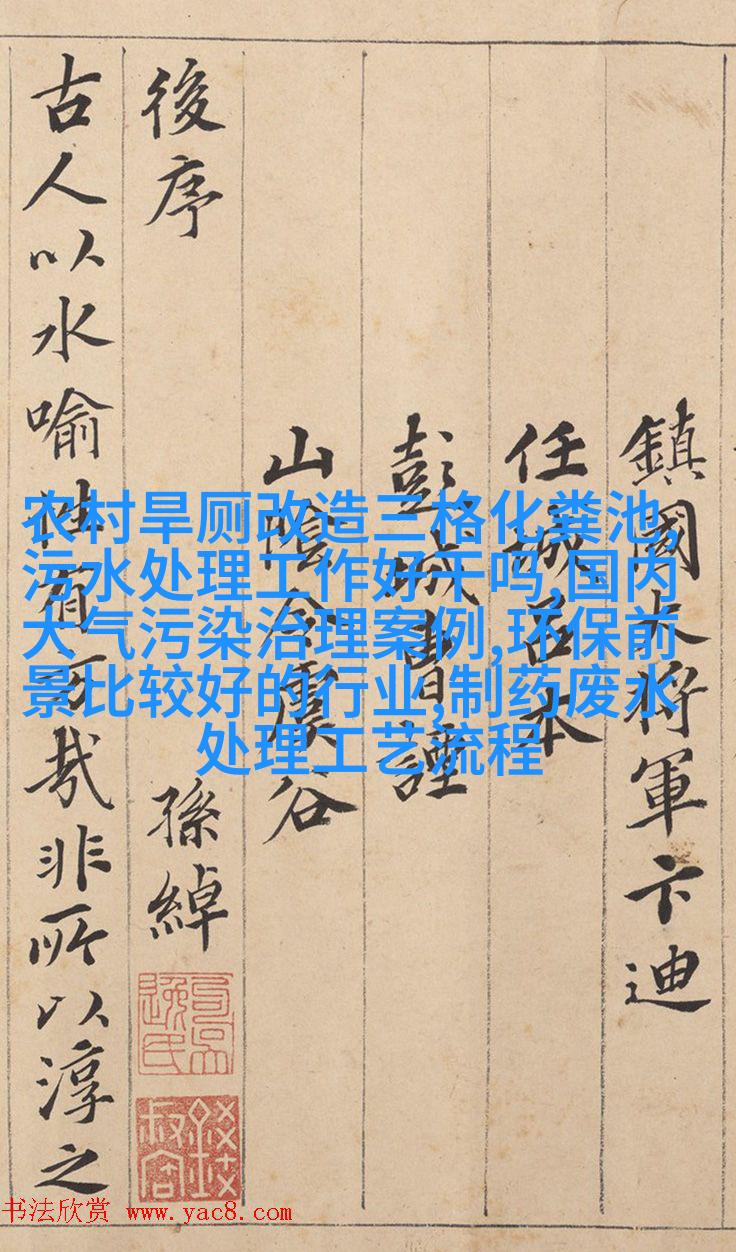 鎮國大将軍卞迪
任城呂本
彭城曹諲
山陰令虞谷
後序 孫綽
古人以水喻性有旨哉非所以淳之
农村旱厕改造三格化粪池,
污水处理工作好干吗,国内
大气污染治理案例,环保前
景比较好的行业,制药废水
处理工艺流程
书法欣赏 www.yac8.com